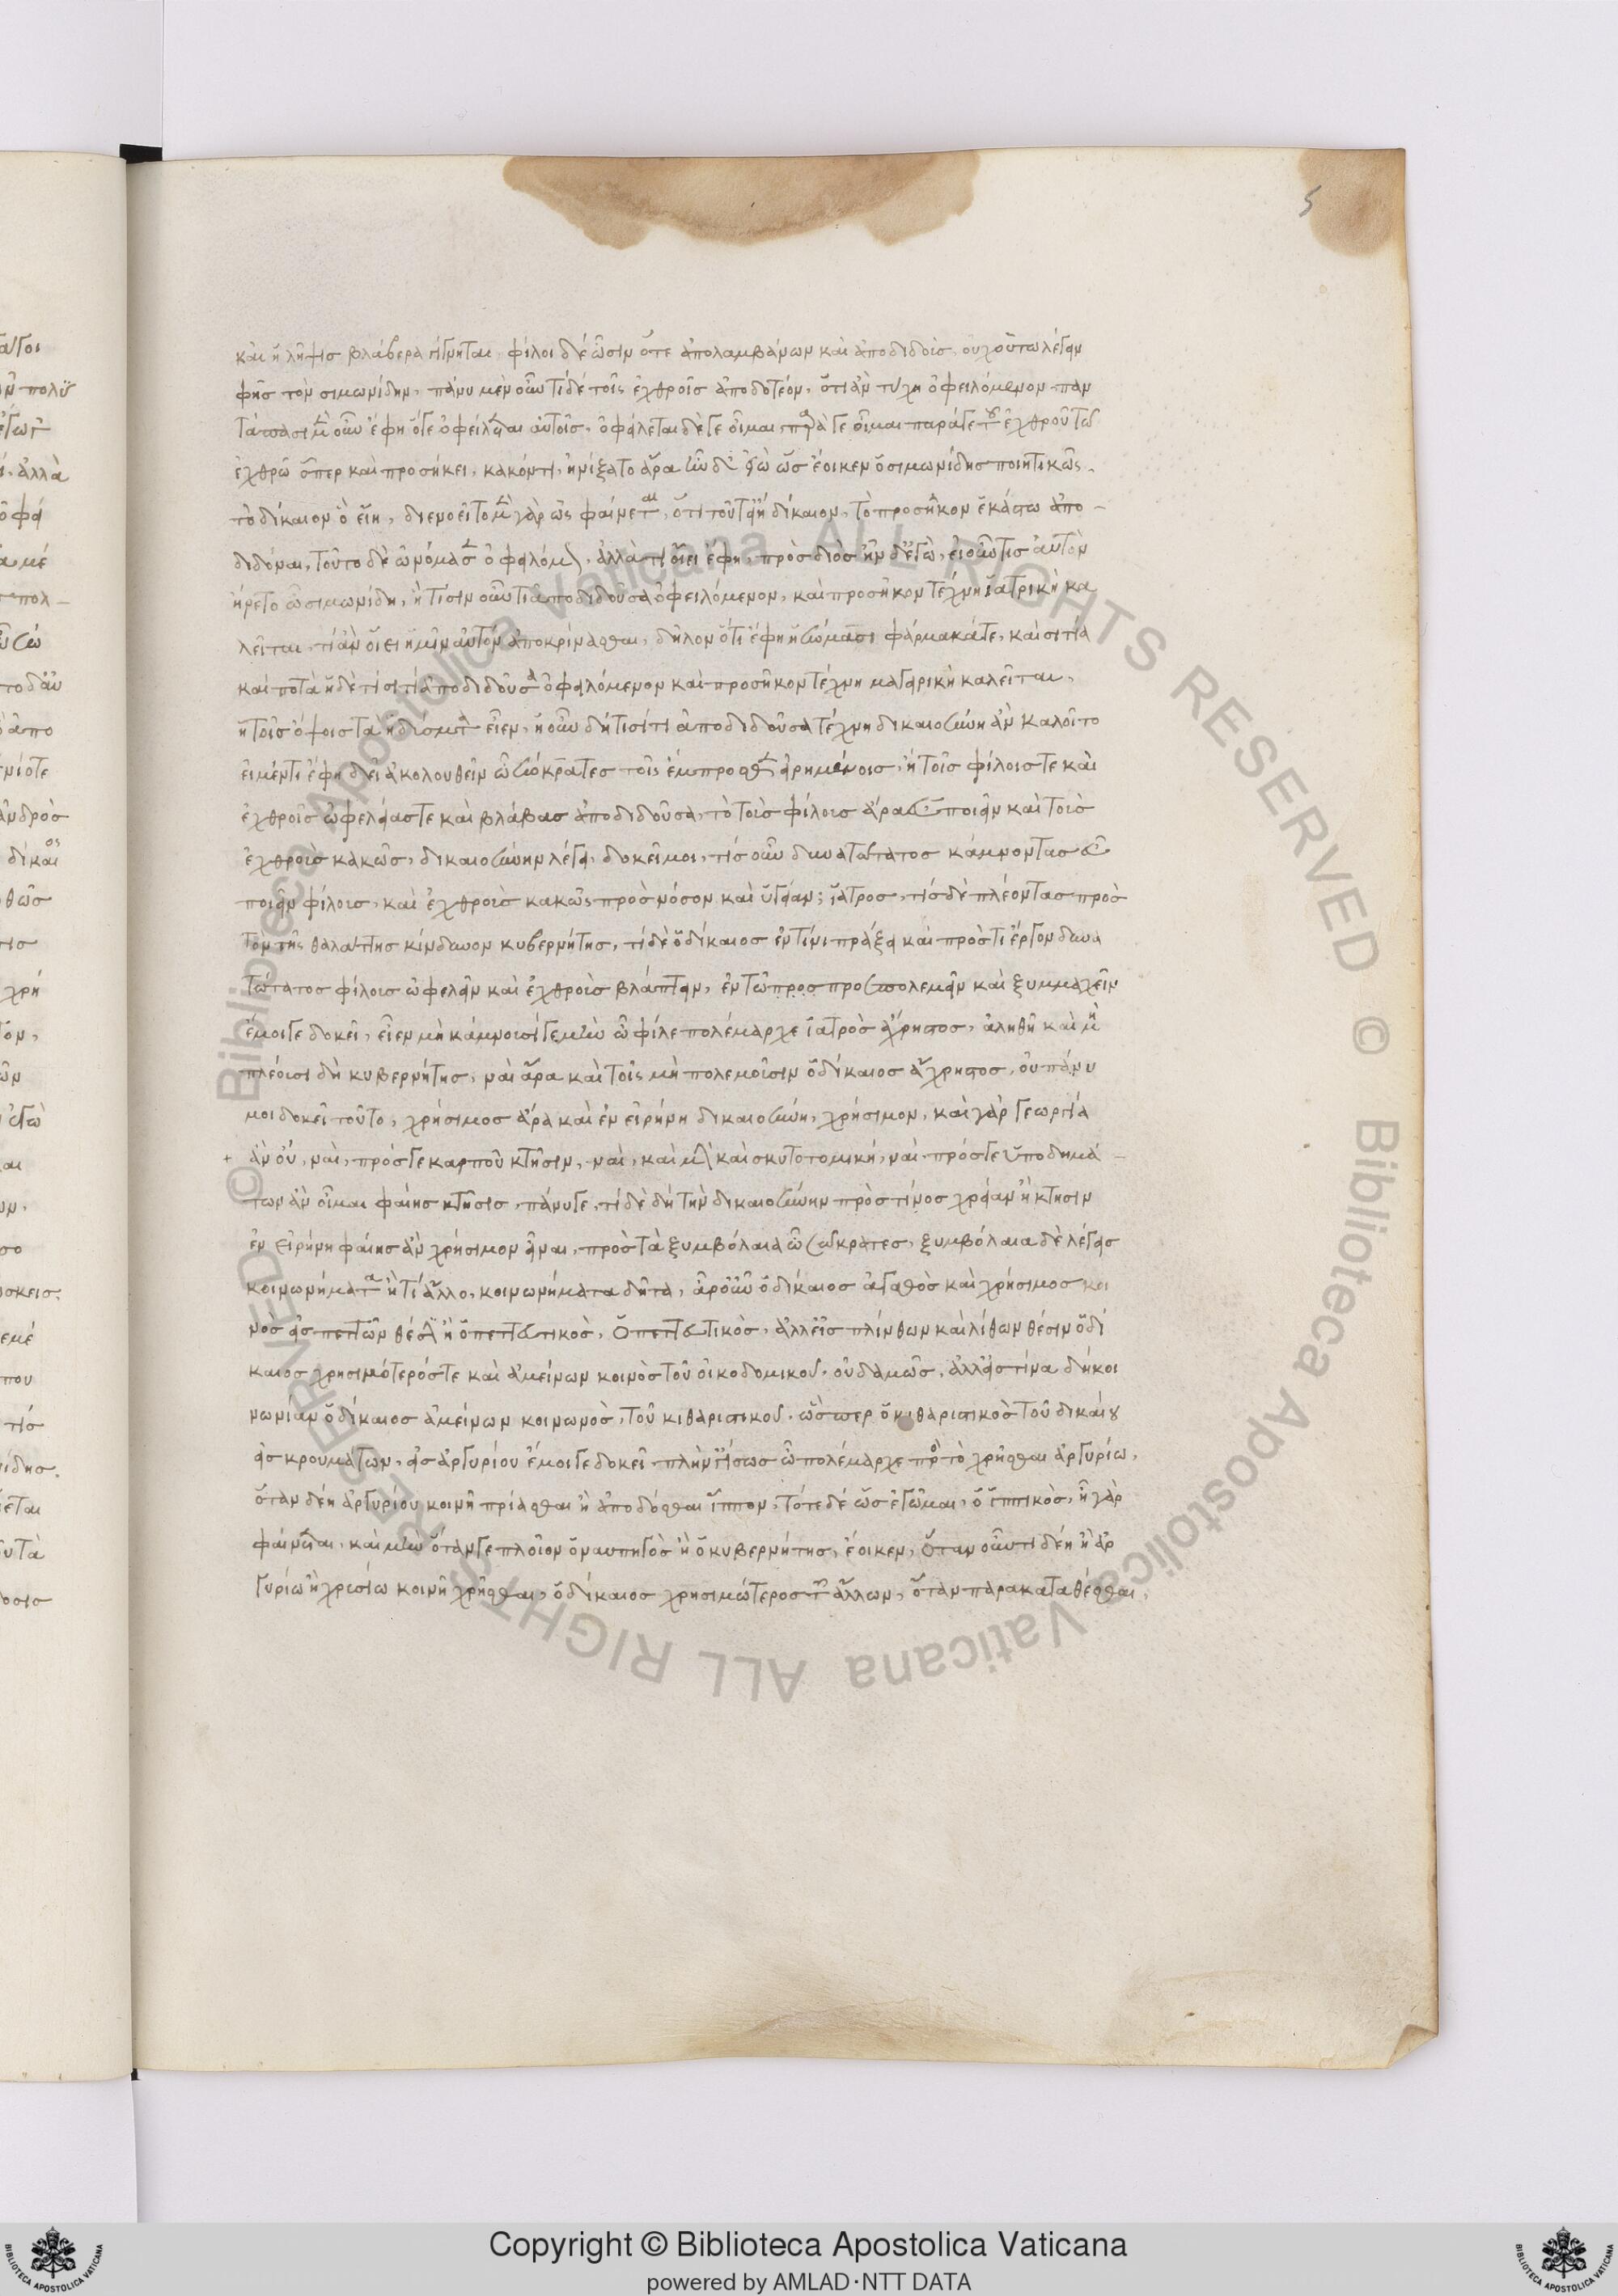 5
καὶ ἡ λῆψισ βλάβερὰ γίγνηται, φίλοι δέ ὦσιν ὅτε ἀπολαμβάνων καὶ ἀποδιδοὶσ, οὐχ οὕτω λέγειν
φῂσ τὸν σιμωνίδην, πάνυ μὲν οὖν τί δέ τοῖσ ἐχθροῖσ ἀποδοτέον, ὅτι ἂν τύχη ὀφειλόμενον παν
τάπασι μὲν οὖν ἔφη ὅγε ὀφείλεται αὐτοῖσ, ὀφείλεται δέ γε οἶμαι παρά γε τοῦ ἐχθροῦ τῶ
ἐχθρῶ ὅπερ καὶ προσήκει, κακόν τι, ἠνίξατο ἄρα ἦν δ' ἐγὼ ὡσ ἔοικεν ὁ σιμωνίδησ ποιητικῶς.
τὸ δίκαιον ὃ εἴη, διενοεῖτο μὲν γὰρ ὡς φαίνεται, ὅτι τοῦτ' εἴη δίκαιον, τὸ προσῆκον ἑκάστω ἀπο-
διδόναι, τοῦτο δὲ ὠνόμασεν ὀφειλόμενον, ἀλλὰ τί οἴει ἔφη, πρὸσ διὸσ ἦν δ' ἐγὼ, εἰ οὖν τισ αὐτὸν
ἤρετο ὦ σιμωνίδη, ἡ τίσιν οὖν τί ἀποδιδοῦσα ὀφειλόμενον, καὶ προσῆκον τέχνη ἰατρικὴ κα
λεῖται, τί ἂν οἴει ἡμῖν αὐτὸν ἀποκρίνασθαι, δῆλον ὅτι ἔφη ἡ σώμασι φάρμακά τε, καὶ σιτία
καὶ ποτὰ ἡ δὲ τίσι τί ἀποδιδοῦσα ὀφειλόμενον καὶ προσῆκον τέχνη μαγειρικὴ καλεῖται,
ἡ τοῖσ ὄψοισ τὰ ἡδύσματα εἶεν, ἡ οὖν δὴ τίσι τί ἀποδιδοῦσα τέχνη δικαιοσύνη ἂν καλοῖτο
εἰ μέν τι ἔφη δεῖ ἀκολουθεῖν ὦ σώκρατεσ τοῖς ἔμπροσθεν εἰρημένοισ, ἡ τοῖσ φίλοισ τε καὶ
ἐχθροῖσ ὠφελείασ τε καὶ βλάβασ ἀποδιδοῦσα, τὸ τοὺσ φίλουσ ἄρα εὖ ποιεῖν καὶ τοὺσ
ἐχθροὺσ κακῶσ, δικαιοσύνην λέγει, δοκεῖ μοι, τίσ οὖν δυνατώτατοσ κάμνοντασ εὖ
ποιεῖν φίλουσ, καὶ ἐχθροὺσ κακῶς πρὸσ νόσον καὶ ὑγίειαν; ἰατροσ, τίσ δὲ πλέοντασ πρὸσ
τὸν τῆς θαλάττησ κίνδυνον κυβερνήτησ, τί δὲ ὁ δίκαιοσ ἐν τίνι πράξει καὶ πρὸσ τί ἔργον δυνα
τώτατοσ φίλουσ ὠφελεῖν καὶ ἐχθροὺσ βλάπτειν, ἐν τῶ προσ προσπολεμεῖν καὶ ξυμμαχεῖν
ἔμοιγε δοκεῖ, εἶεν μὴ κάμνουσί γε μὴν ὦ φίλε πολέμαρχε ἰατρὸσ ἄχρηστοσ, ἀληθῆ καὶ μὴ
πλέουσι δὴ κυβερνήτησ, ναὶ ἄρα καὶ τοῖς μὴ πολεμοῦσιν ὁ δίκαιοσ ἄχρηστοσ, οὐ πάνυ
μοι δοκεῖ τοῦτο, χρήσιμοσ ἄρα καὶ ἐν εἰρήνη δικαιοσύνη, χρήσιμον, καὶ γὰρ γεωργία
+ ἂν οὐ, ναὶ, πρόσ γε καρποῦ κτῆσιν, ναὶ, καὶ μὴν καὶ σκυτοτομική, ναὶ, πρόσ γε ὑποδημά-
των ἂν οἶμαι φαίησ κτῆσισ, πάνυ γε, τί δὲ δὴ τὴν δικαιοσύνην πρὸσ τίνοσ χρείαν ἢ κτησιν
ἐν εἰρήνη φαίησ ἂν χρήσιμον εἶναι, πρὸσ τὰ ξυμβόλαια ὦ σώκρατεσ, ξυμβόλαια δὲ λέγεισ
κοινωνήματα ἤ τι ἄλλο, κοινωνήματα δῆτα, ἆρ' οὖν ὁ δίκαιοσ ἀγαθὸσ καὶ χρήσιμοσ κοι
νὸσ εἰσ πεττῶν θέσιν ἢ ὁ πεττευτικὸσ, ὁ πεττευτικὸσ, ἀλλ' εἰσ πλίνθων καὶ λίθων θέσιν ὁ δί
καιοσ χρησιμότερόσ τε καὶ ἀμείνων κοινὸσ τοῦ οἰκοδομικοῦ, οὐδαμῶσ, ἀλλ' εἰσ τίνα δὴ κοι
νωνίαν ὁ δίκαιοσ ἀμείνων κοινωνοσ, τοῦ κιθαριστικοῦ, ὥσπερ ὁ κιθαριστικοσ τοῦ δικαίου
εἰσ κρουμάτων, εἰσ ἀργυρίου ἔμοιγε δοκεῖ πλήν γ' ἴσωσ ὦ πολέμαρχε πρὸσ τὸ χρῆσθαι ἀργυρίω,
ὅταν δέη ἀργυρίου κοινῆ πρίασθαι ἢ ἀποδόσθαι ἵππον, τότε δέ ὡσ ἐγὦμαι, ὁ ἱππικὸσ, ἦ γὰρ
φαίνεται, καὶ μὴν ὅταν γε πλοῖον ὁ ναυπηγὸσ ἢ ὁ κυβερνήτησ, ἔοικεν, ὅταν οὖν τί δέη ἢ ἀρ
γυρίω ἢ χρυσίω κοινῆ χρῆσθαι, ὁ δίκαιοσ χρησιμώτεροσ τῶν ἄλλων, ὅταν παρακαταθέσθαι,
© Biblioteca Apostolica Vaticana ALL RIGHTS RESERVED © Biblioteca Apostolica Vaticana ALL RIGHTS RESERVED
Copyright © Biblioteca Apostolica Vaticana
powered by AMLAD·NTT DATA
BIBLIOTECA APOSTOLICA VATICANA
BIBLIOTECA APOSTOLICA VATICANA